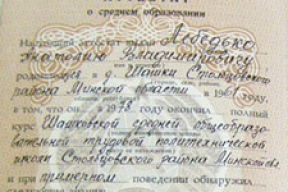 о среднем образовании
Настоящий аттестат выдан Лебедько
Анатолию Владимировичу
родившемуся в д. Шашки Столбцовского
района Минской области в 1961 году,
в том, что он в 1978 году окончил полный
курс Шашковской средней общеобразо-
вательной трудовой политехнической
школы Столбцовского района Минской об
и при примерном поведении обнаружил